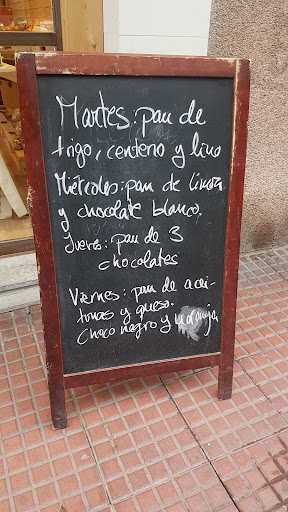 Martes: pan de
trigo, centeno y lino
Miércoles: pan de limón
y chocolate blanco.
Jueves: pan de 3
chocolates
Viernes: pan de acei-
tunas y queso.
Choco negro y naranja